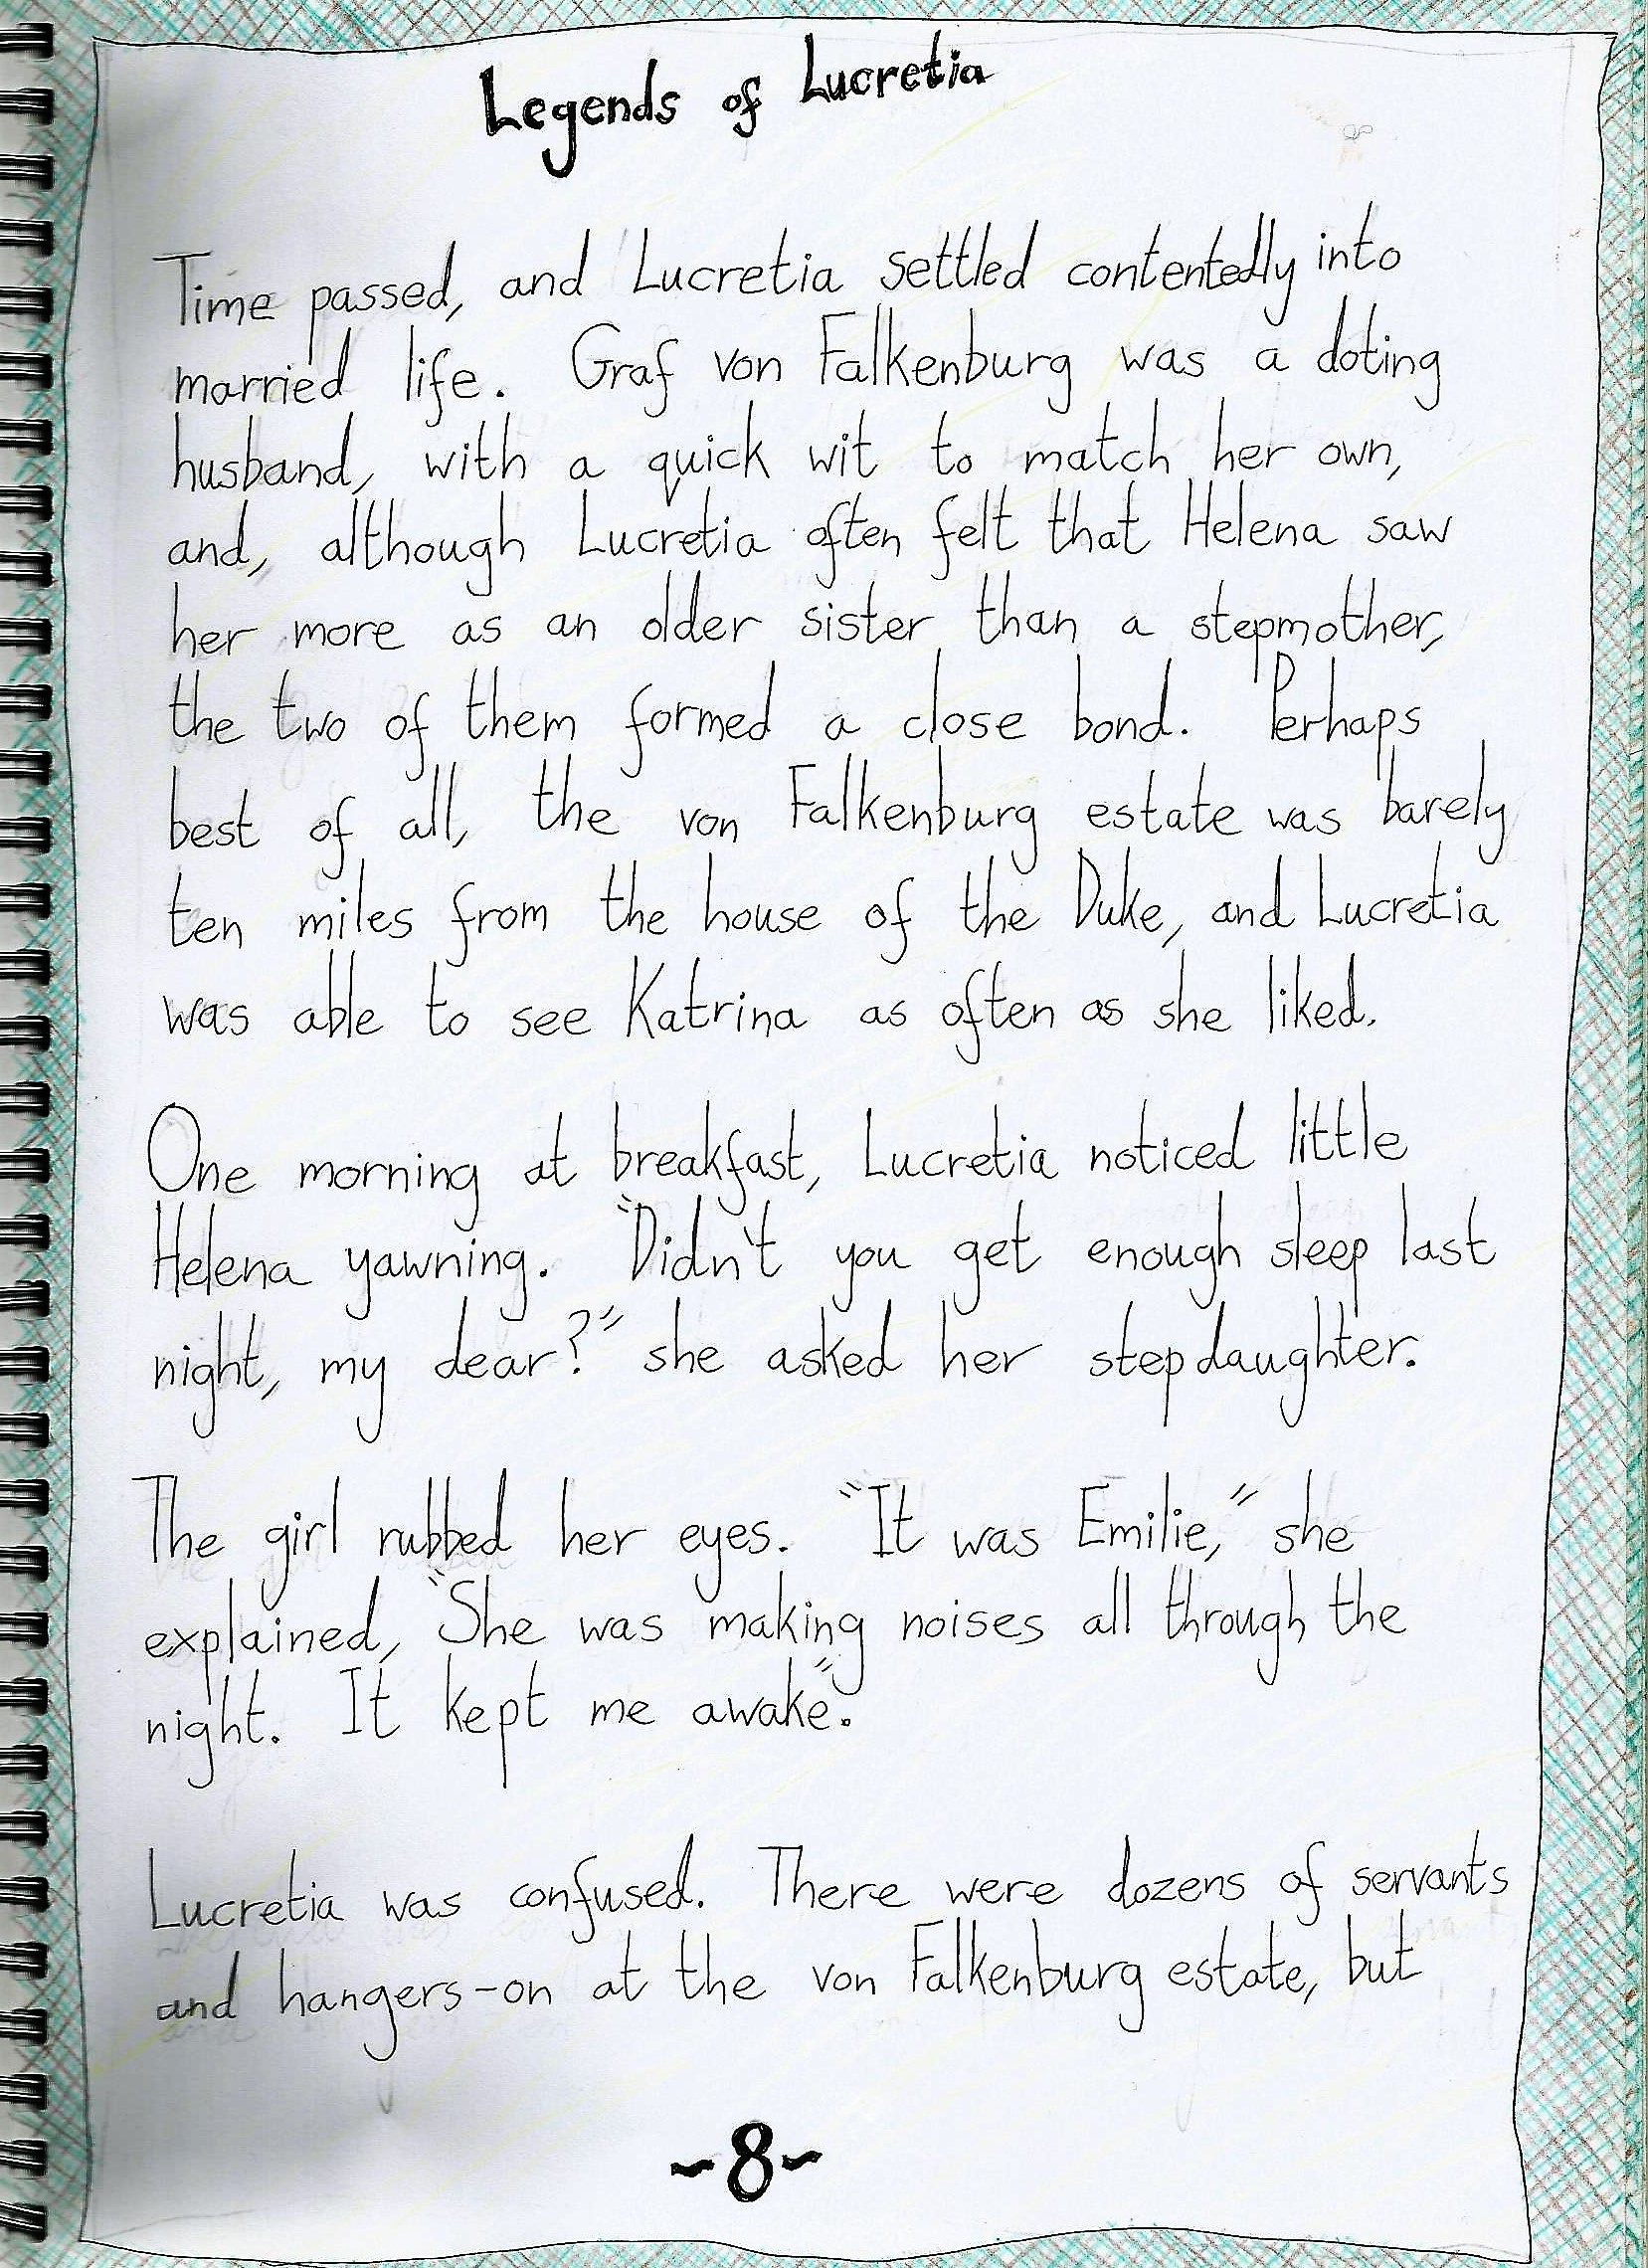 Legends of Lucretia
Time passed, and Lucretia settled contentedly into
married life. Graf von Falkenburg was a doting
husband, with a quick wit to match her own,
and, although Lucretia often felt that Helena saw
her more as an older sister than a stepmother,
the two of them formed a close bond. Perhaps
best of all, the von Falkenburg estate was barely
ten miles from the house of the Duke, and Lucretia
was able to see Katrina as often as she liked.
One morning at breakfast, Lucretia noticed little
Helena yawning. "Didn't you get enough sleep last
night, my dear?" she asked her stepdaughter.
The girl rubbed her eyes. "It was Emilie," she
explained, "She was making noises all through the
night. It kept me awake".
Lucretia was confused. There were dozens of servants
and hangers-on at the von Falkenburg estate, but
~8~